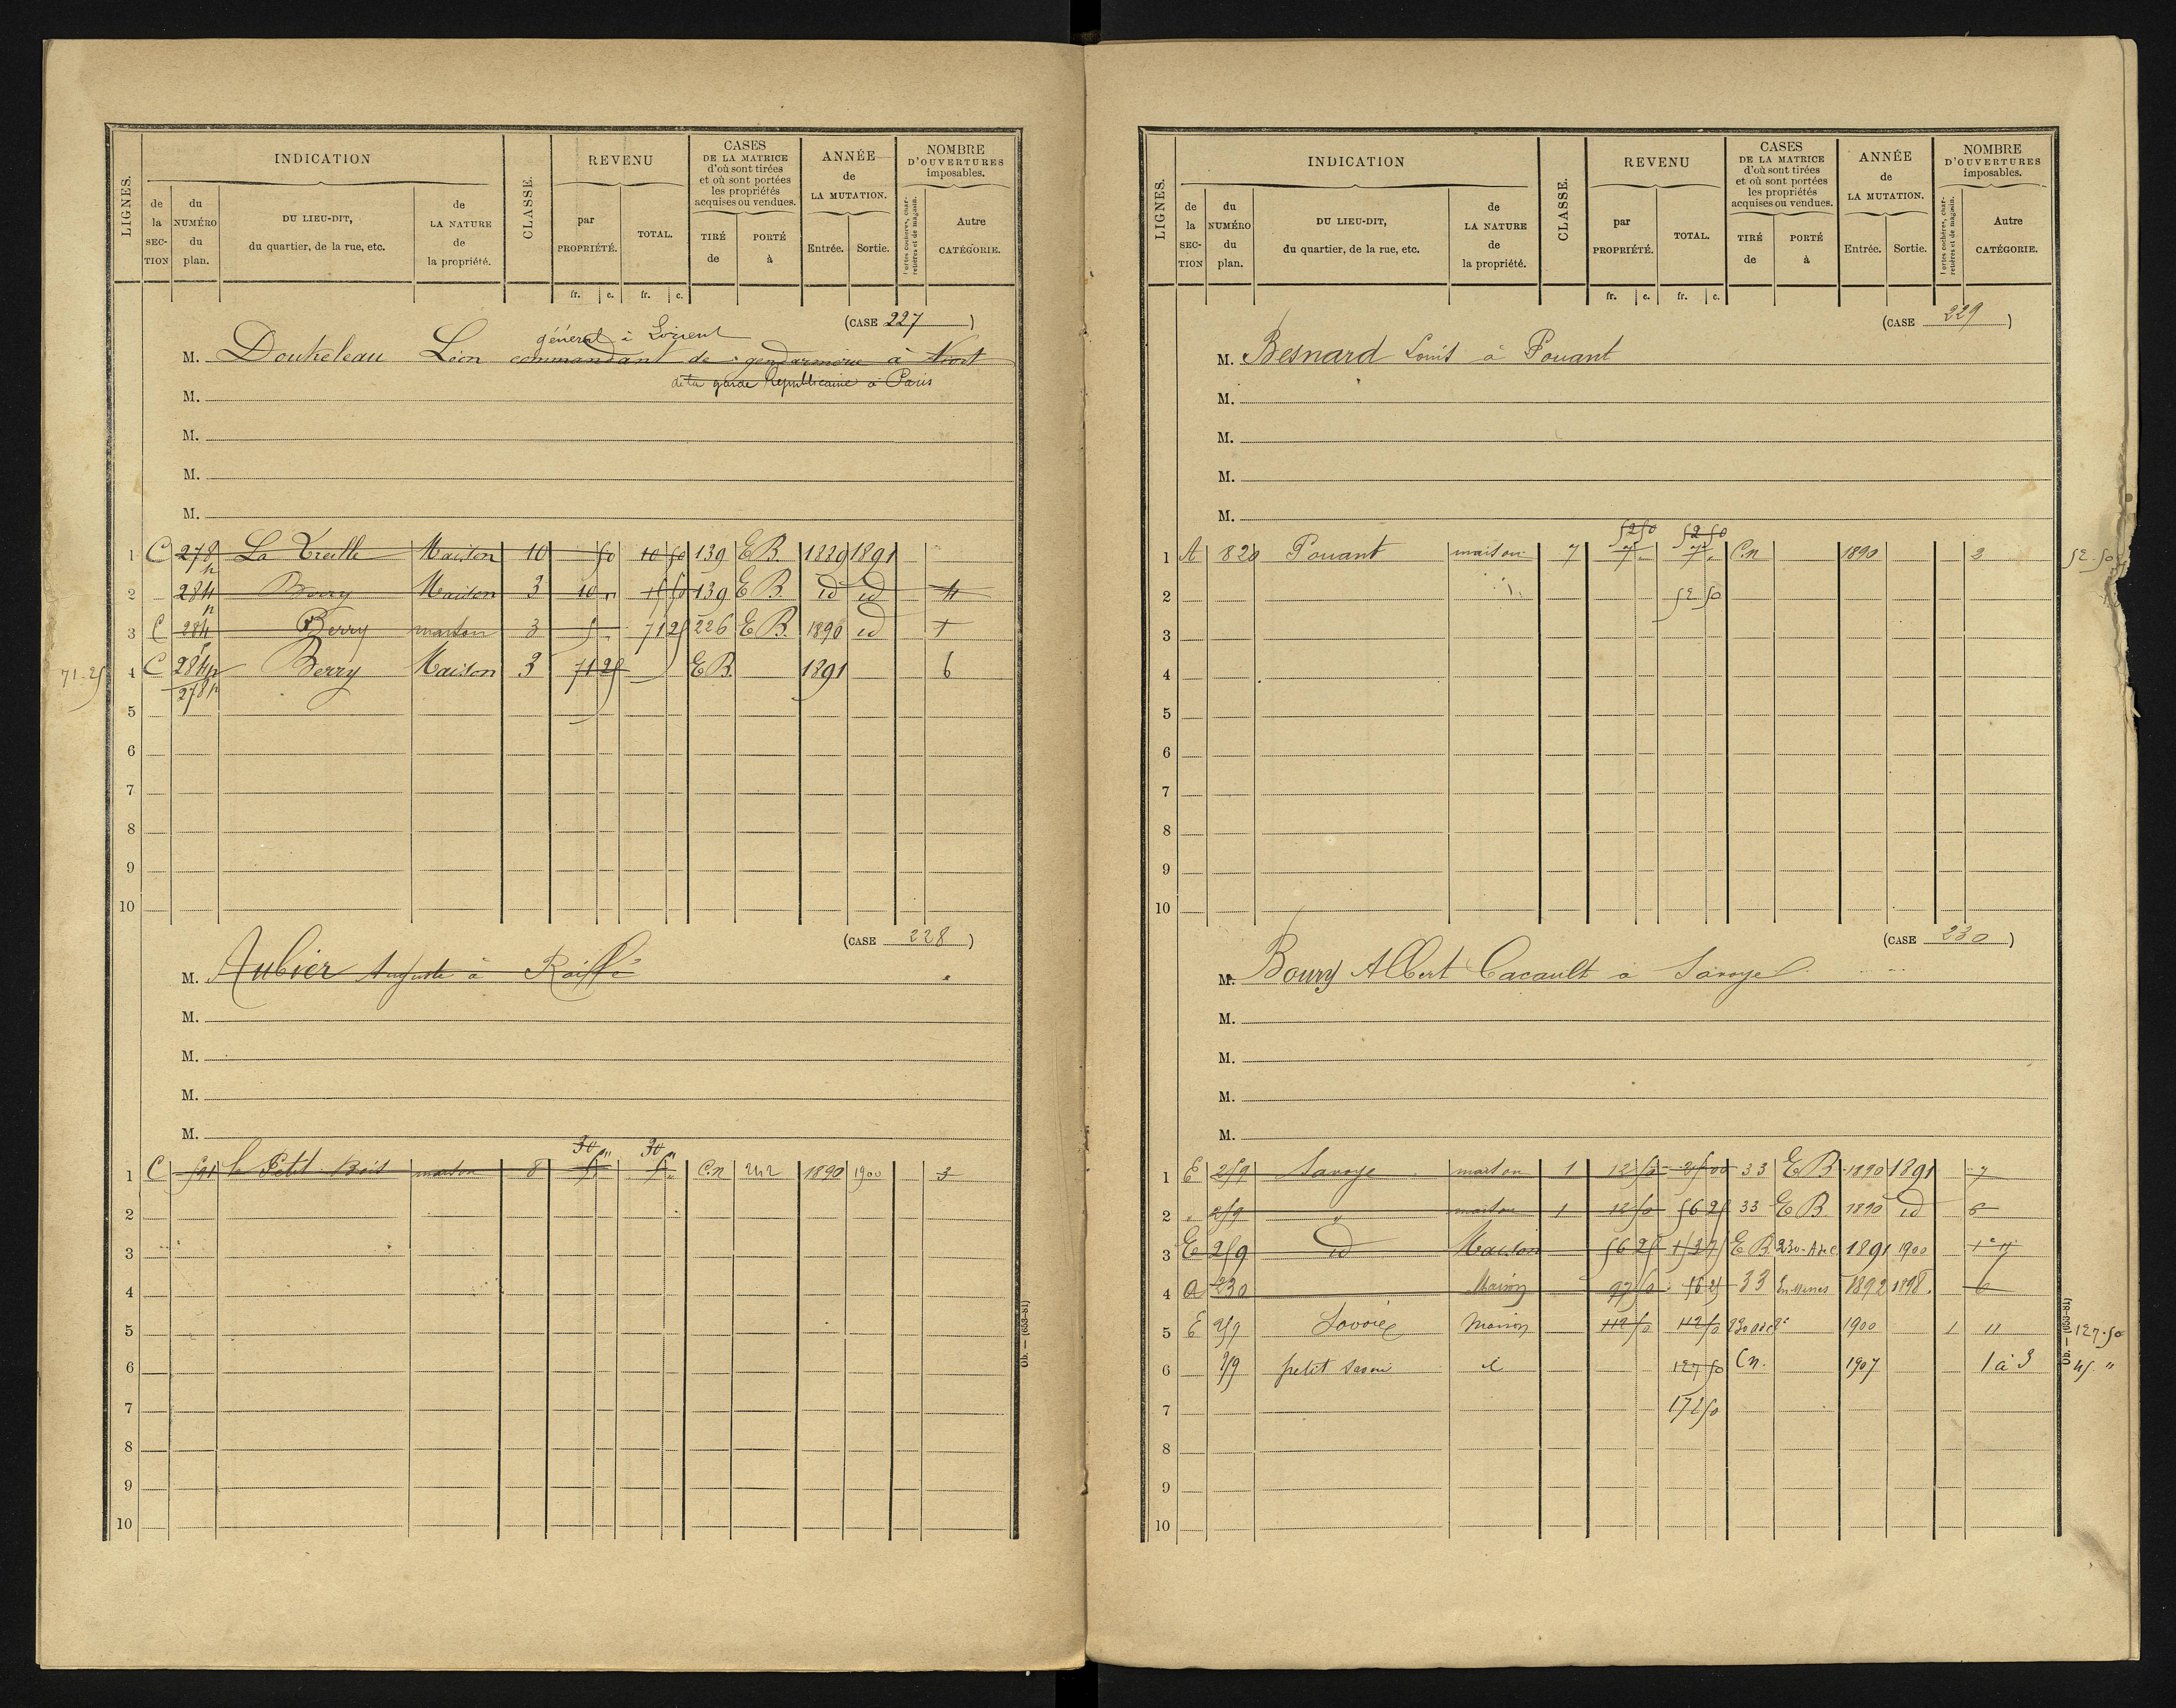 LIGNES.
INDICATION
de la SECTION
du NUMÉRO du plan.
DU LIEU-DIT, du quartier, de la rue, etc.
de LA NATURE de la propriété.
CLASSE.
REVENU
par PROPRIÉTÉ.
TOTAL.
CASES DE LA MATRICE d'où sont tirées et où sont portées les propriétés acquises ou vendues.
TIRÉ de
PORTÉ à
ANNÉE de LA MUTATION.
Entrée.
Sortie.
NOMBRE D'OUVERTURES imposables.
Portes cochères, charretières et de magasin.
Autre CATÉGORIE.
fr. c. fr. c.
(CASE 227)
général à Lorient
M. Léon commandant de gendarmerie à Niort
de la garde Républicaine à Paris
M.
M.
M.
M.
1 C 278p La Treille Maison 10 50 10 50 139 E B. 1889 1891
2 284p Berry Maison 3 10 " 15 50 139 E B. id id 4
3 C 284 Berry maison 3 5 " 71 25 226 E B. 1890 id 1
71-25 4 C 284p 278p Berry Maison 3 71 25 E B. 1891 6
5
6
7
8
9
10
(CASE 228)
M. Aubier Auguste à Raiffé
M.
M.
M.
M.
30 " 30 "
1 C 591 le Petit Bois maison 8 5 " 5 " C.n 242 1890 1900 3
2
3
4
5
6
7
8
9
10
Ob. — (653-81)
LIGNES.
INDICATION
de la SECTION
du NUMÉRO du plan.
DU LIEU-DIT, du quartier, de la rue, etc.
de LA NATURE de la propriété.
CLASSE.
REVENU
par PROPRIÉTÉ.
TOTAL.
CASES DE LA MATRICE d'où sont tirées et où sont portées les propriétés acquises ou vendues.
TIRÉ de
PORTÉ à
ANNÉE de LA MUTATION.
Entrée.
Sortie.
NOMBRE D'OUVERTURES imposables.
Portes cochères, charretières et de magasin.
Autre CATÉGORIE.
fr. c. fr. c.
(CASE 229)
M. Besnard Louis à Pouant
M.
M.
M.
M.
52 50 52 50
1 A 820 Pouant maison 7 7 " 7 " C.n 1890 3 52-50
2 52 50
3
4
5
6
7
8
9
10
(CASE 230)
M. Boury Albert Cacault à Savoye
M.
M.
M.
M.
1 E 259 Savoye maison 1 12 50 25 00 33 E B 1890 1891 7
2 " 259 " maison 1 12 50 56 25 33 E B. 1890 id 6
3 E 259 id Maison 56 25 E B. 230 1891 1900
4 A 230 Maison 97 50 56 25 33 1892 1898 6
5 E 259 Savoie Maison 112 50 112 50 1900 1 11 127.50
6 259 petit d 127 50 Cn. 1907 1 à 3 45. "
7 172 50
8
9
10
Ob. — (653-81)